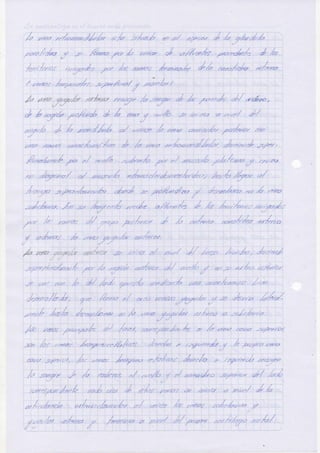 La vena retromandibular está situada en el espesor de la glándula
parótida y se forma por la unión de afluentes procedentes de los
territorios irrigados por las ramas terminales de la carótida externa
(venas temporales superficial y maxilar)
La vena yugular externa recoge la sangre de las paredes del cráneo,
de la región profunda de la cara y cuello, se inicia a nivel del
ángulo de la mandíbula al unirse la vena auricular posterior con
una rama comunicativa de la vena retromandibular, desciende super-
ficialmente por el cuello cubierta por el músculo platisma y cruza
en diagonal al músculo esternocleidomastoideo, hasta llegar al
triángulo supraclavicular donde se profundiza y desemboca en la vena
subclavia. En su trayecto recibe afluentes de los territorios irrigados
por las ramas del grupo posterior de la arteria carótida externa
y además, la vena yugular anterior.
La vena yugular anterior se inicia al nivel del hueso hioides, desciende
superficialmente por la región anterior del cuello y en su extremo inferior
se une con la del lado opuesto mediante una anastomosis bien
desarrollada, que forma el arco venoso yugular y se desvía lateral-
mente hasta desembocar en la vena yugular externa o subclavia.
Las venas principales del tórax, correspondientes a la vena cava superior
son las venas braquiocefálicas derecha e izquierda y la propia vena
cava superior, las venas braquiocefálicas derecha e izquierda recogen
la sangre de la cabeza, el cuello y el miembro superior del lado
correspondiente cada una de estas venas se inicia a nivel de la
articulación esternoclavicular al unirse las venas subclavia y
yugular interna y terminan a nivel del primer cartílago costal